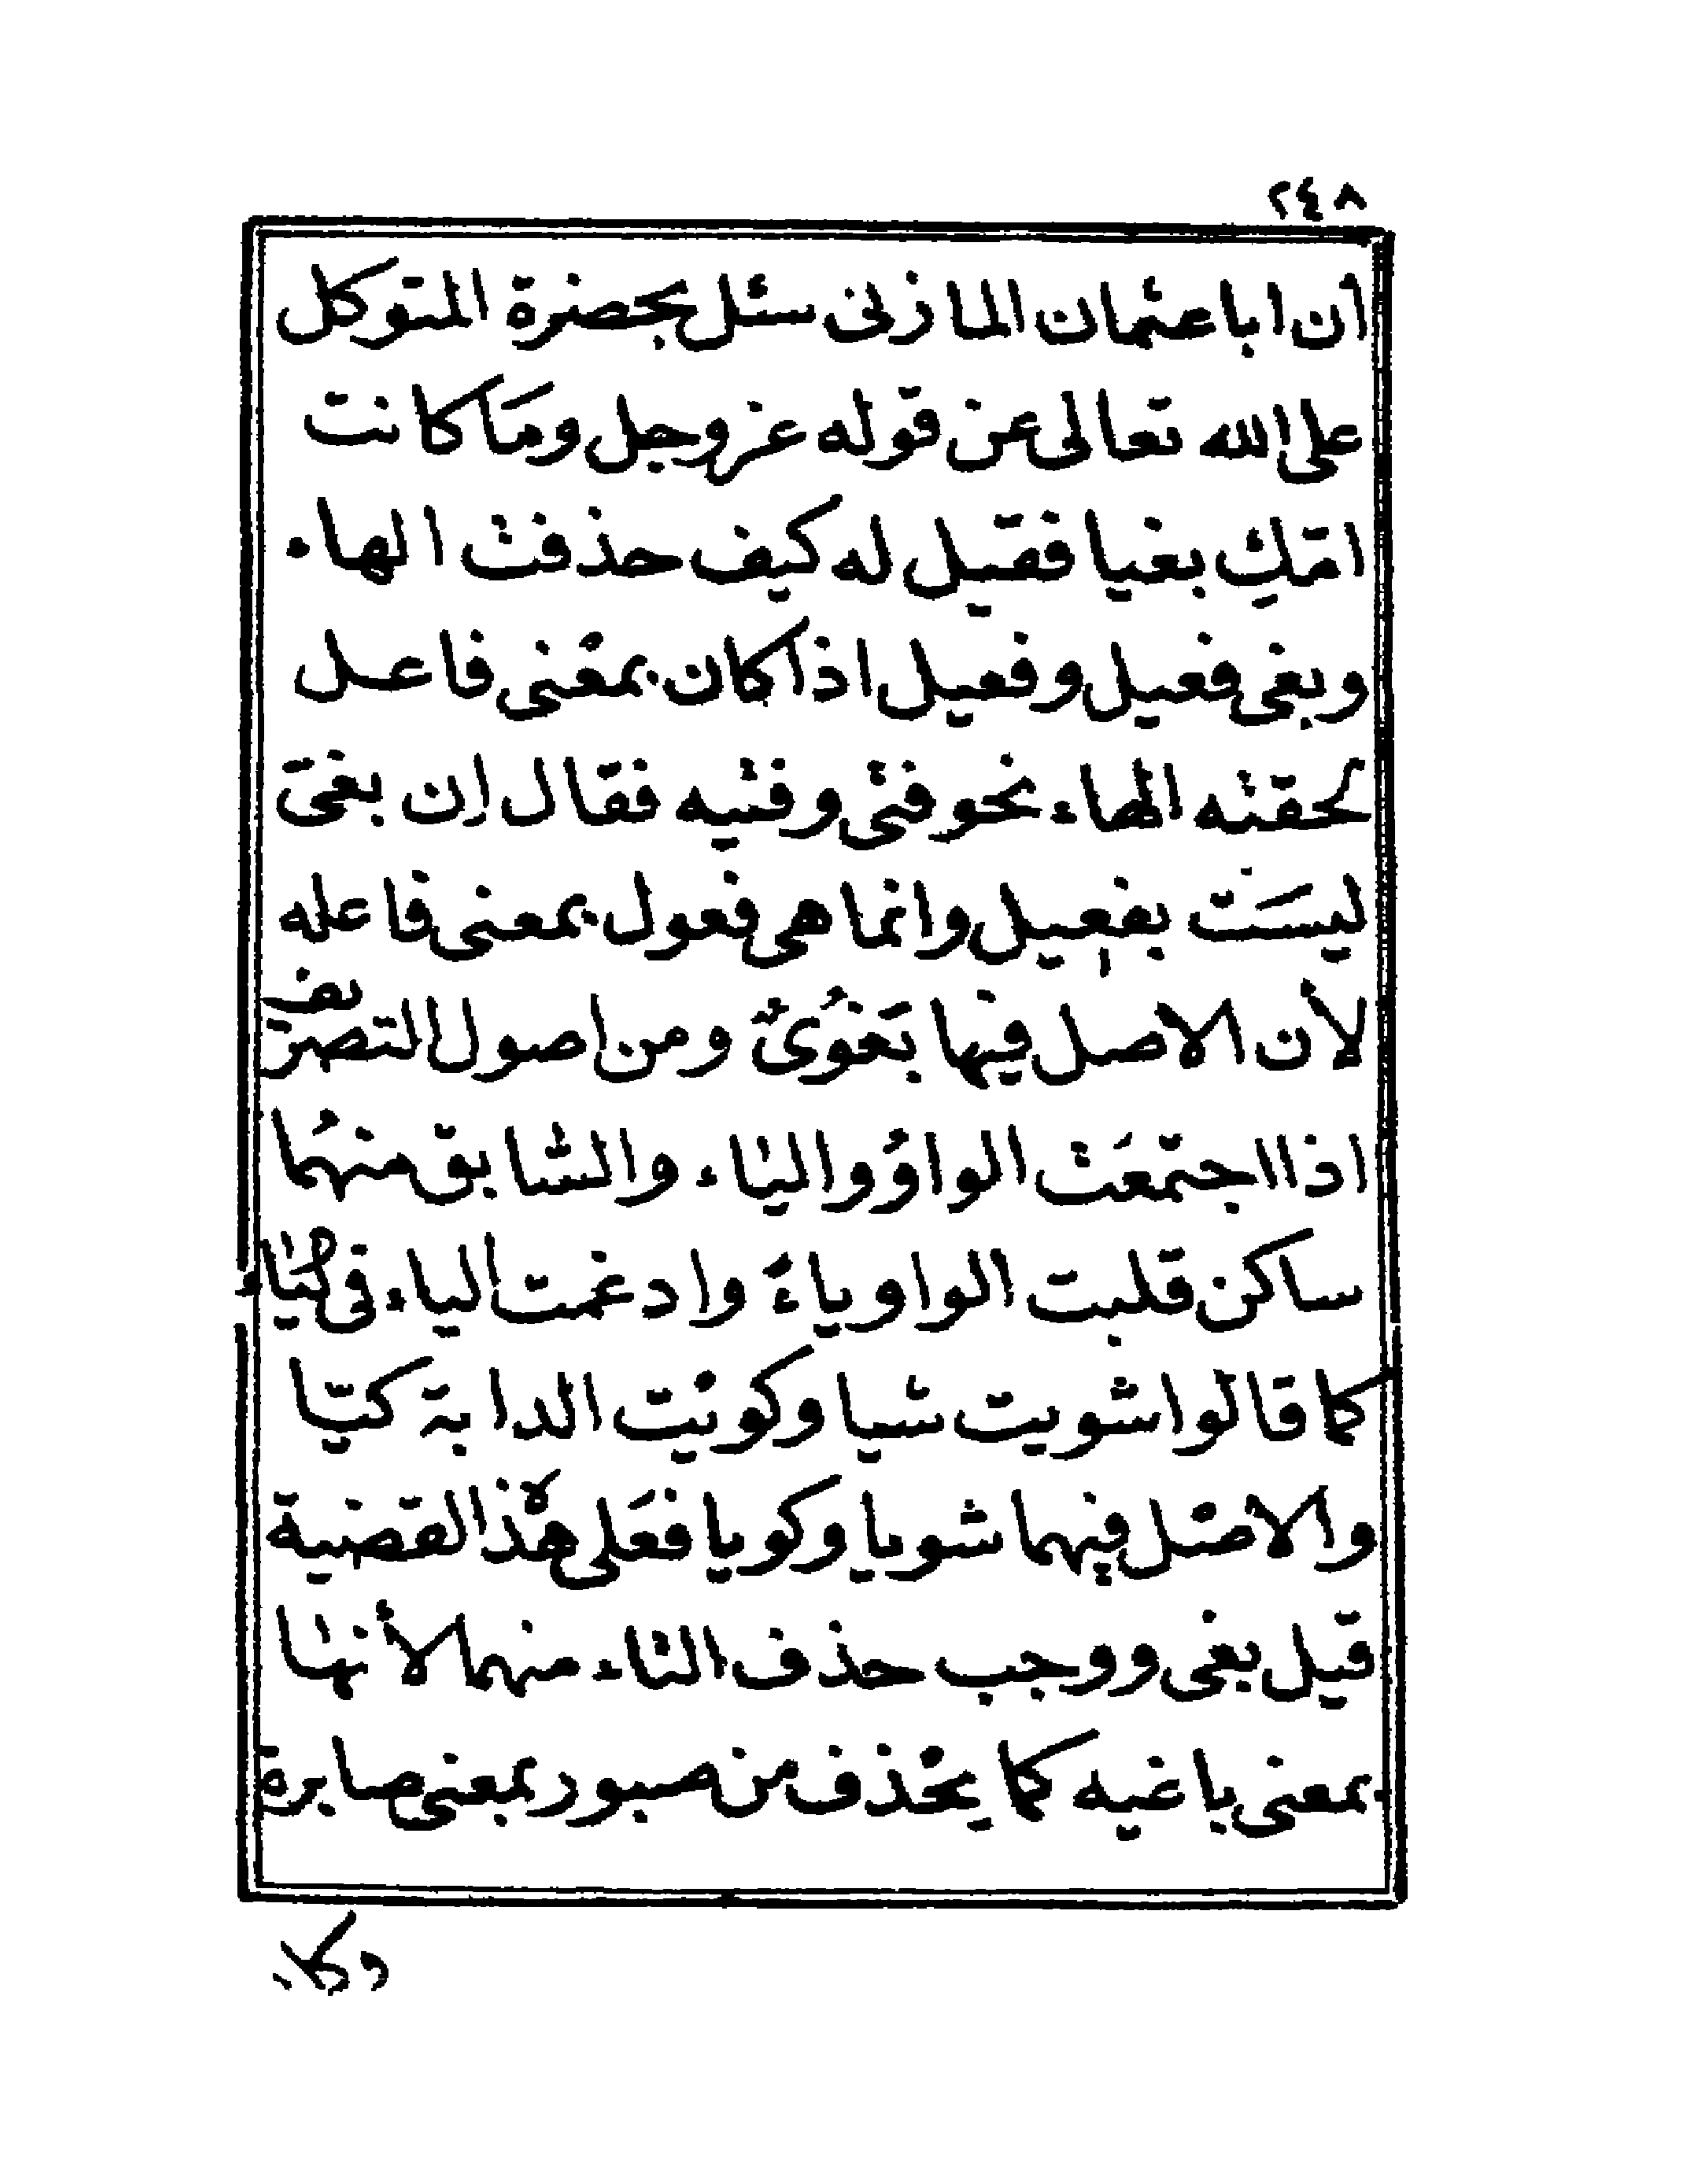 ٢٤٨
أن ابا عثمان المازنى سئل بحضرة المتوكل
على الله تعالى عن قوله عز وجل ومَا كانت
امّكِ بغيا فقيل له كيف حذفت الهاء
وبغى فعيل وفعيل اذا كان بمعْنى فاعل
لحقته الهاء نحو فتى وفتيه فقال إن بغىّ
ليسَت بفعيل وانما هى فعول بمعنى فاعله
لأن الاصل فيها بَغُوىٌ ومن اصول التصريف
اذا اجتمعَت الواوُ والياء والسابق منهُما
ساكن قلبت الواو ياءً وادغمت الياء فى الياء
كما قالوا شويت شيا وكويت الدابة كيّا
والاصل فيهما شويا وكويا فعَلى هذه القضية
قيل بغى ووجب حذف التاء منهما لأنها
بمعنى باغيه كما يحُذف من صبور بمعنى صابرة